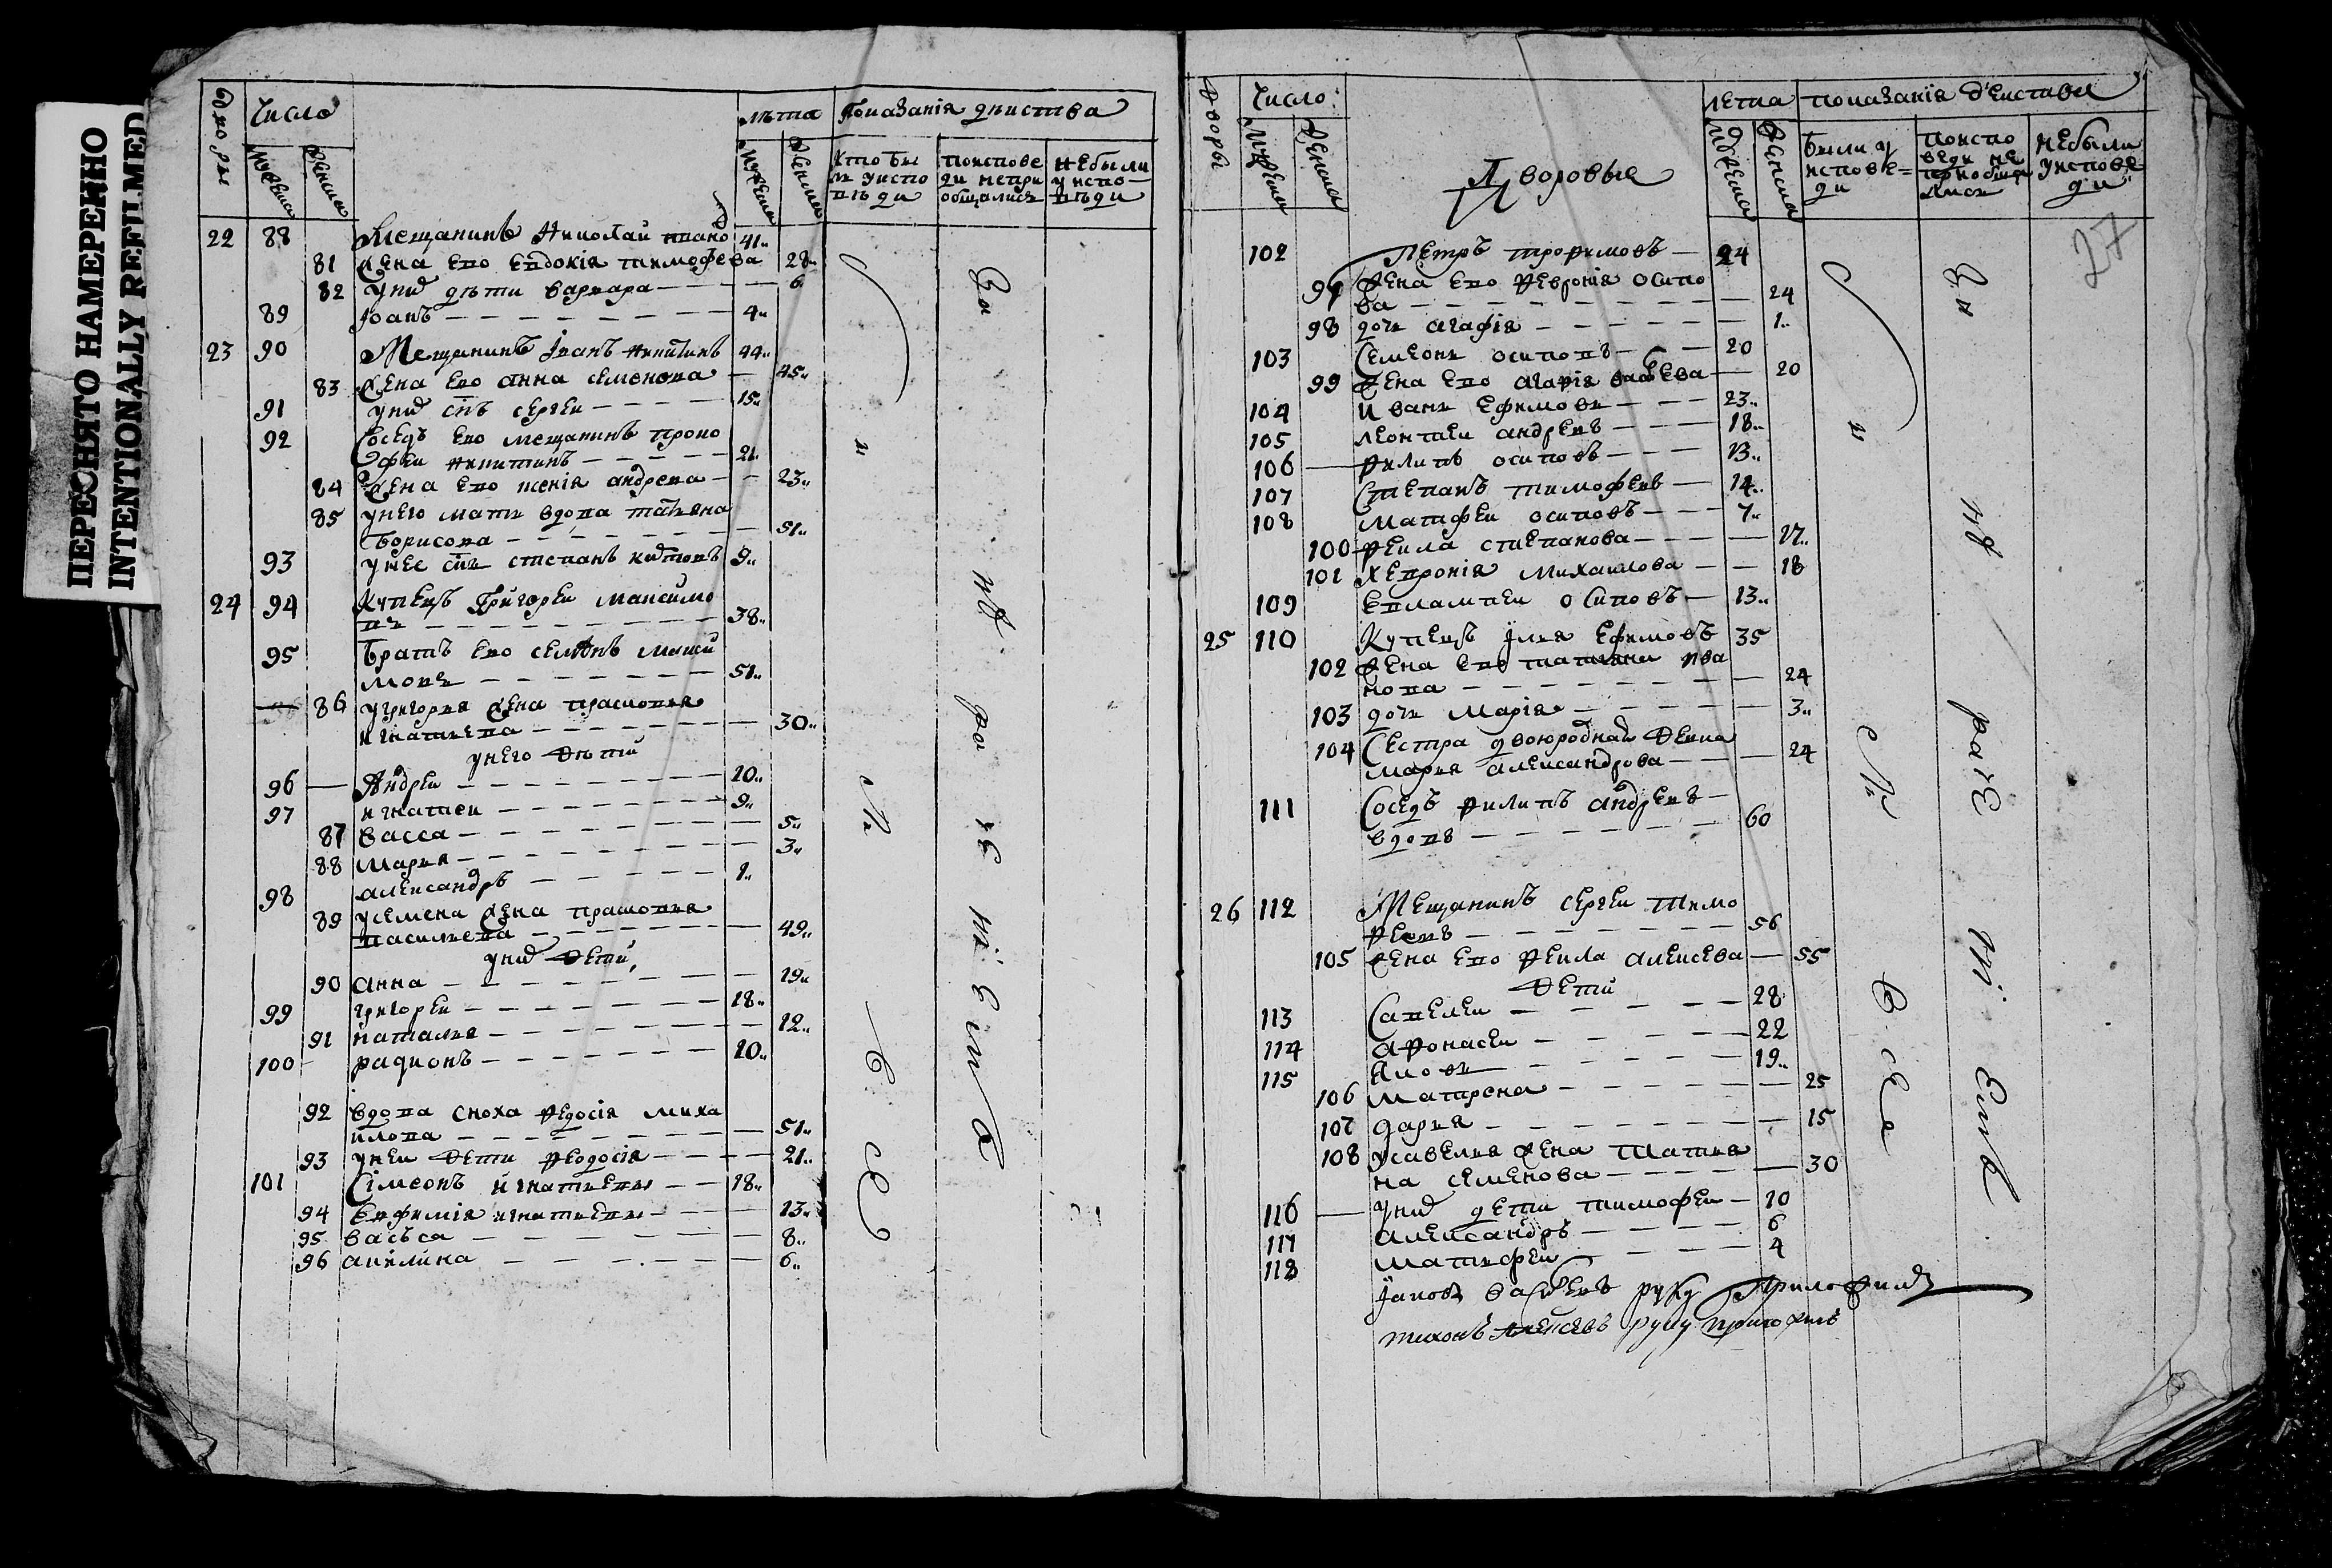 ПЕРЕСНЯТО НАМЕРЕННО
INTENTIONALLY REFILMED
Число
лѣта Показанiя
мужеска женска
22 88 Мещанинъ Николай 41
81 Жена ево Евдокiя тимофева 28
82 у них дѣти варвара 6
89 Iоанъ 4
23 90 Мещанинъ Iванъ никитинъ 44
83 Жена ево анна семенова 45
91 у них сн҃ъ сергеи 15
92 Соседъ ево мещанинъ проко
феи никитинъ 21
84 Жена ево ксенiя андрева 23
85 у него мать вдова татьяна
борисова 51
93 у нее сн҃ъ степанъ 9
24 94 Купецъ Григореи максимо
въ 38
95 Братъ ево семенъ макси
мовъ 51
86 у григорья жена прасковья
игнатьева 30
у него дѣти
96 Андреи 10
97 игнатеи 9
87 васса 5
88 марья 3
98 александръ 1
89 у семена жена прасковья
васильева 49
у них дети
90 анна 19
99 григореи 18
91 наталья 12
100 радионъ 10
92 вдова сноха федосiя миха
илова 51
93 у неи дети феодосiя 21
101 Сiмеонъ игнатьевъ 18
94 Евфимiя игнатьева 13
95 васъса 8
96 акилина 6
Дворы Число
Дворовыя
лета показанiя
мужеска женска
Были у исповеди
по исповеди не приобщались
не были у исповеди
27
102 Петръ трофимовъ 24
97 Жена ево февронiя осипо
ва 24
98 дочь агафiя 1
103 Семеонъ осиповъ 20
99 Жена ево 20
104 Иванъ Ефимовъ 23
105 леонтеи андревъ 18
106 филипъ осиповъ 13
107 Степанъ тимофевъ 14
108 матфеи осиповъ 7
100 фекла степанова 17
101 Хевронiя михаилова 18
109 Евлампеи осиповъ 13
25 110 Купецъ илья Ефимовъ 35
102 Жена ево татьяна ива
нова 24
103 дочь марiя 3
104 Сестра двоюродная девка
марья александрова 24
111 Соседъ филипъ андревъ
вдовъ 60
26 112 Мещанинъ сергеи тимо
феевъ 56
105 Жена ево фекла алексева 55
Дети
113 Савелеи 28
114 афонасеи 22
115 Яковъ 19
106 матрена 25
107 дарья 15
108 у савелья жена татья
на семенова 30
116 у них дети тимофеи 10
117 александръ 6
118 матьфеи 4
Iаковъ руку приложилъ
тихонъ алексеевъ руку приложилъ